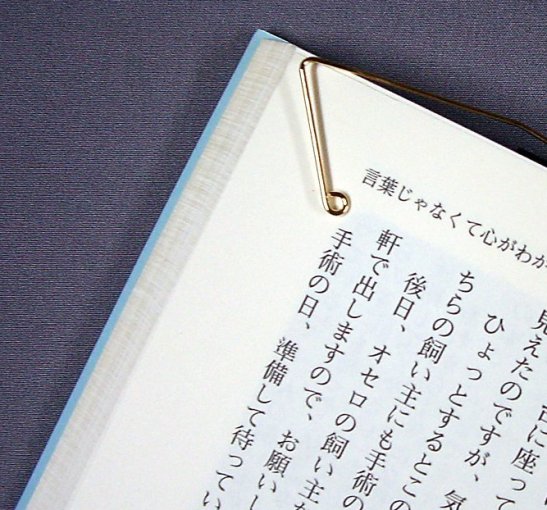 言葉じゃなくて心がわか
見えたのですが、気
ひょっとするとこの
ちらの飼い主にも手術の
後日、オセロの飼い主
軒で出しますので、お願いし
手術の日、準備して待ってい